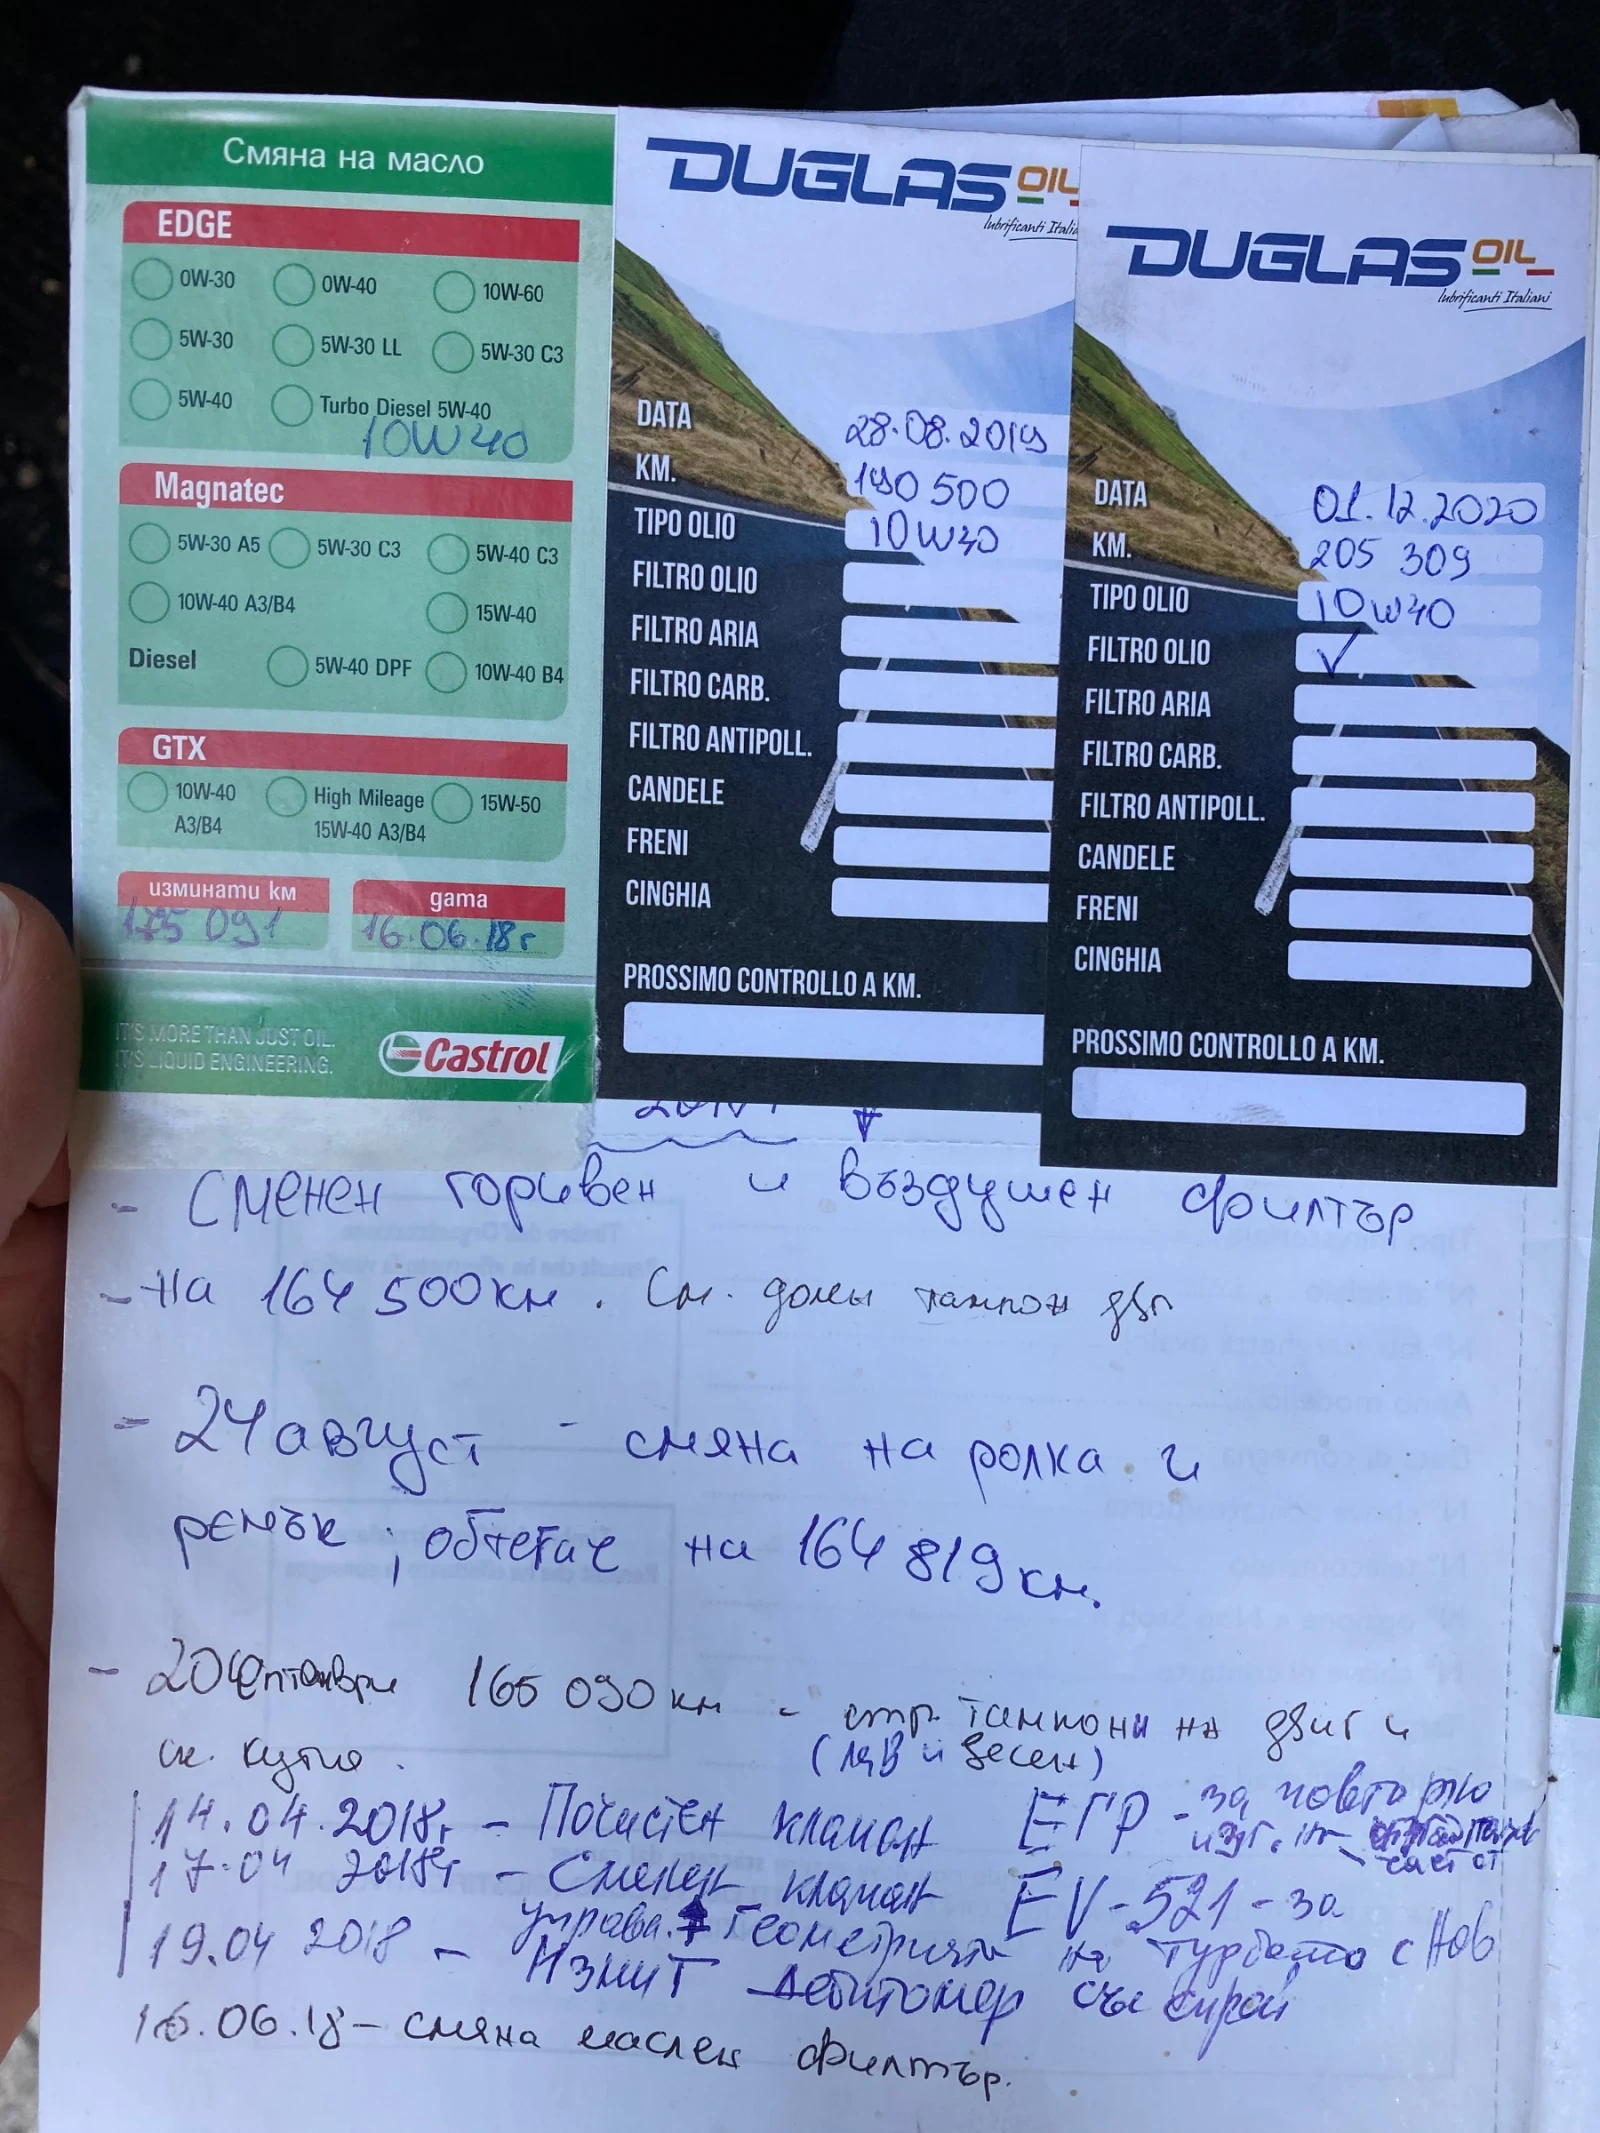 Смяна на масло
EDGE
0W-30 0W-40 10W-60
5W-30 5W-30 LL 5W-30 C3
5W-40 Turbo Diesel 5W-40
10W40
Magnatec
5W-30 A5 5W-30 C3 5W-40 C3
10W-40 A3/B4 15W-40
Diesel 5W-40 DPF 10W-40 B4
GTX
10W-40 A3/B4 High Mileage 15W-40 A3/B4 15W-50
изминати км дата
175 091 16.06.18г
IT'S MORE THAN JUST OIL.
IT'S LIQUID ENGINEERING.
Castrol
DUGLAS OIL
lubrificanti Italia
DATA 28.08.2019
KM. 190 500
TIPO OLIO 10W40
FILTRO OLIO
FILTRO ARIA
FILTRO CARB.
FILTRO ANTIPOLL.
CANDELE
FRENI
CINGHIA
PROSSIMO CONTROLLO A KM.
DUGLAS OIL
lubrificanti Italiani
DATA 01.12.2020
KM. 205 309
TIPO OLIO 10W40
FILTRO OLIO ✓
FILTRO ARIA
FILTRO CARB.
FILTRO ANTIPOLL.
CANDELE
FRENI
CINGHIA
PROSSIMO CONTROLLO A KM.
- Сменен горивен и въздушен филтър
- на 164 500км. См. долен тампон двг
- 24 август - смяна на ролка и
ремък; обтегач на 164 819км.
- 20 септември 165 090 км - стр. тампони на двиг и
ск. кутия. (ляв и десен)
14.04.2018г - Почистен клапан ЕГР - за повторно
изг. на
17.04 2018г - Сменен клапан EV-521 - за
управл. геометрията на турбото с нов
19.04 2018 - Измит дебитомер със спрей
16.06.18 - смяна маслен филтър.